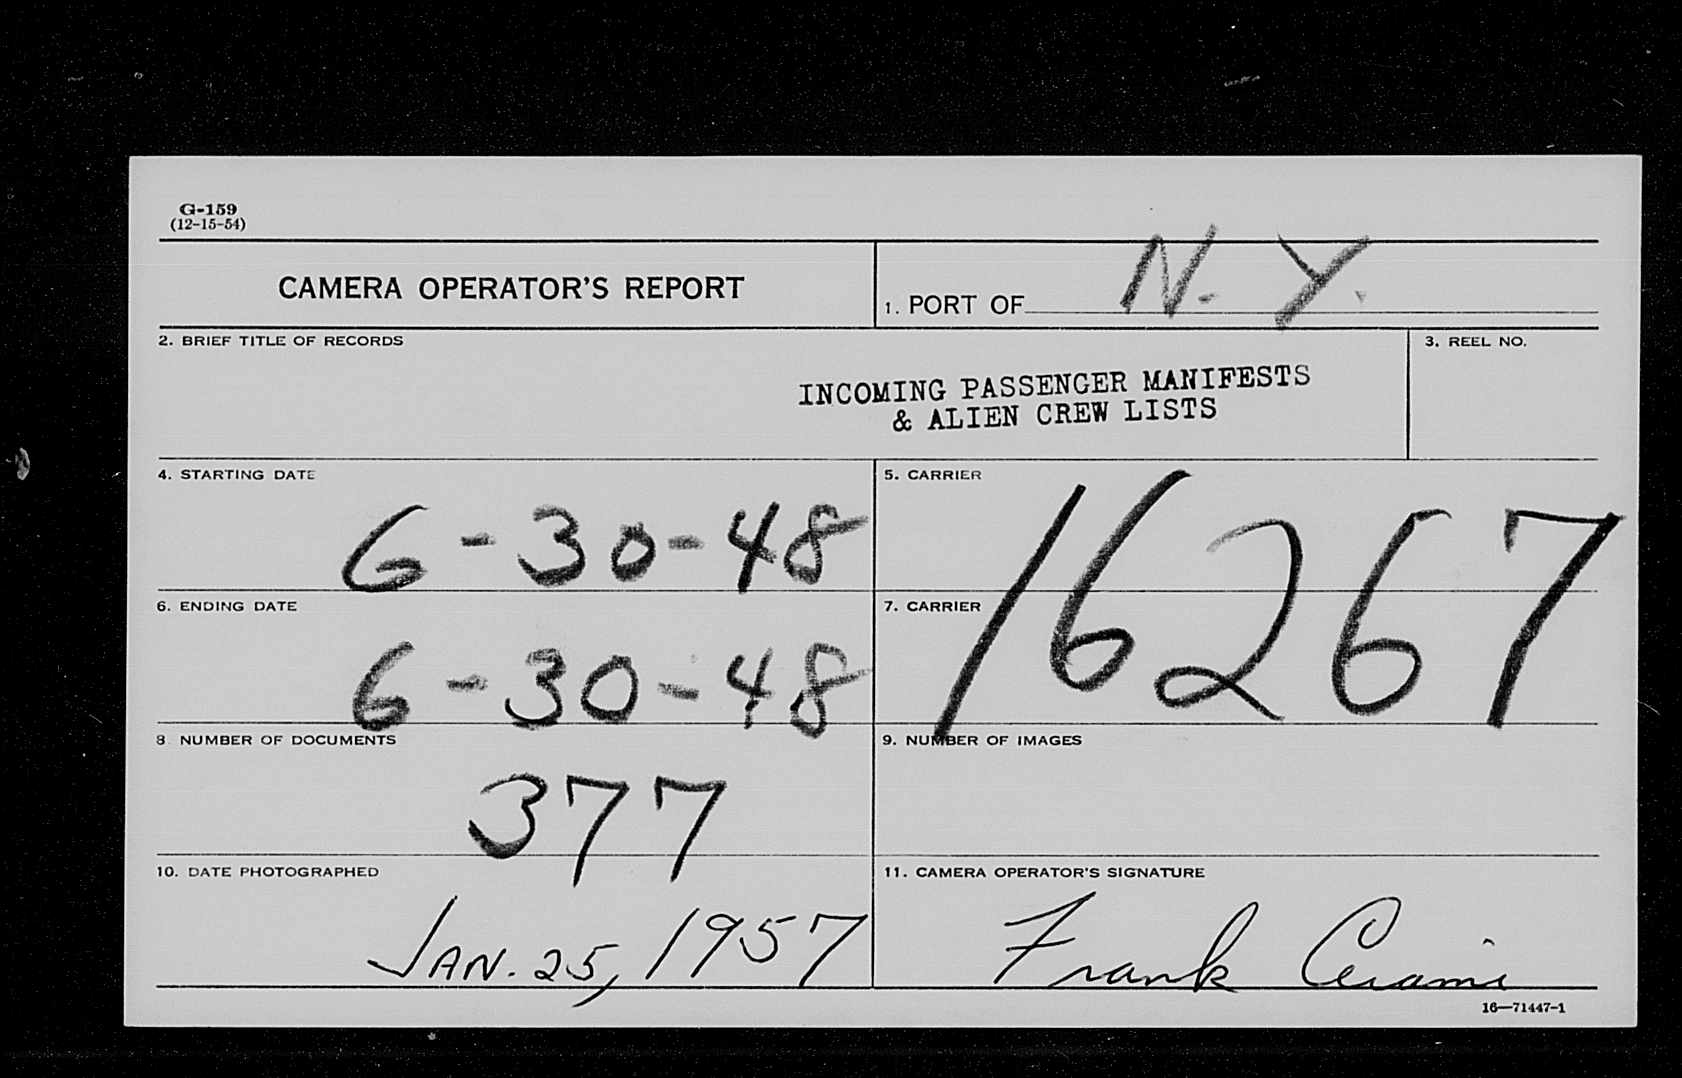 G-159
(12-15-54)
CAMERA OPERATOR'S REPORT
1. PORT OF N. Y.
2. BRIEF TITLE OF RECORDS
3. REEL NO.
INCOMING PASSENGER MANIFESTS
& ALIEN CREW LISTS
4. STARTING DATE
6-30-48
5. CARRIER
16267
6. ENDING DATE
6-30-48
7. CARRIER
8. NUMBER OF DOCUMENTS
377
9. NUMBER OF IMAGES
10. DATE PHOTOGRAPHED
JAN. 25, 1957
11. CAMERA OPERATOR'S SIGNATURE
Frank Cerami
16—71447-1